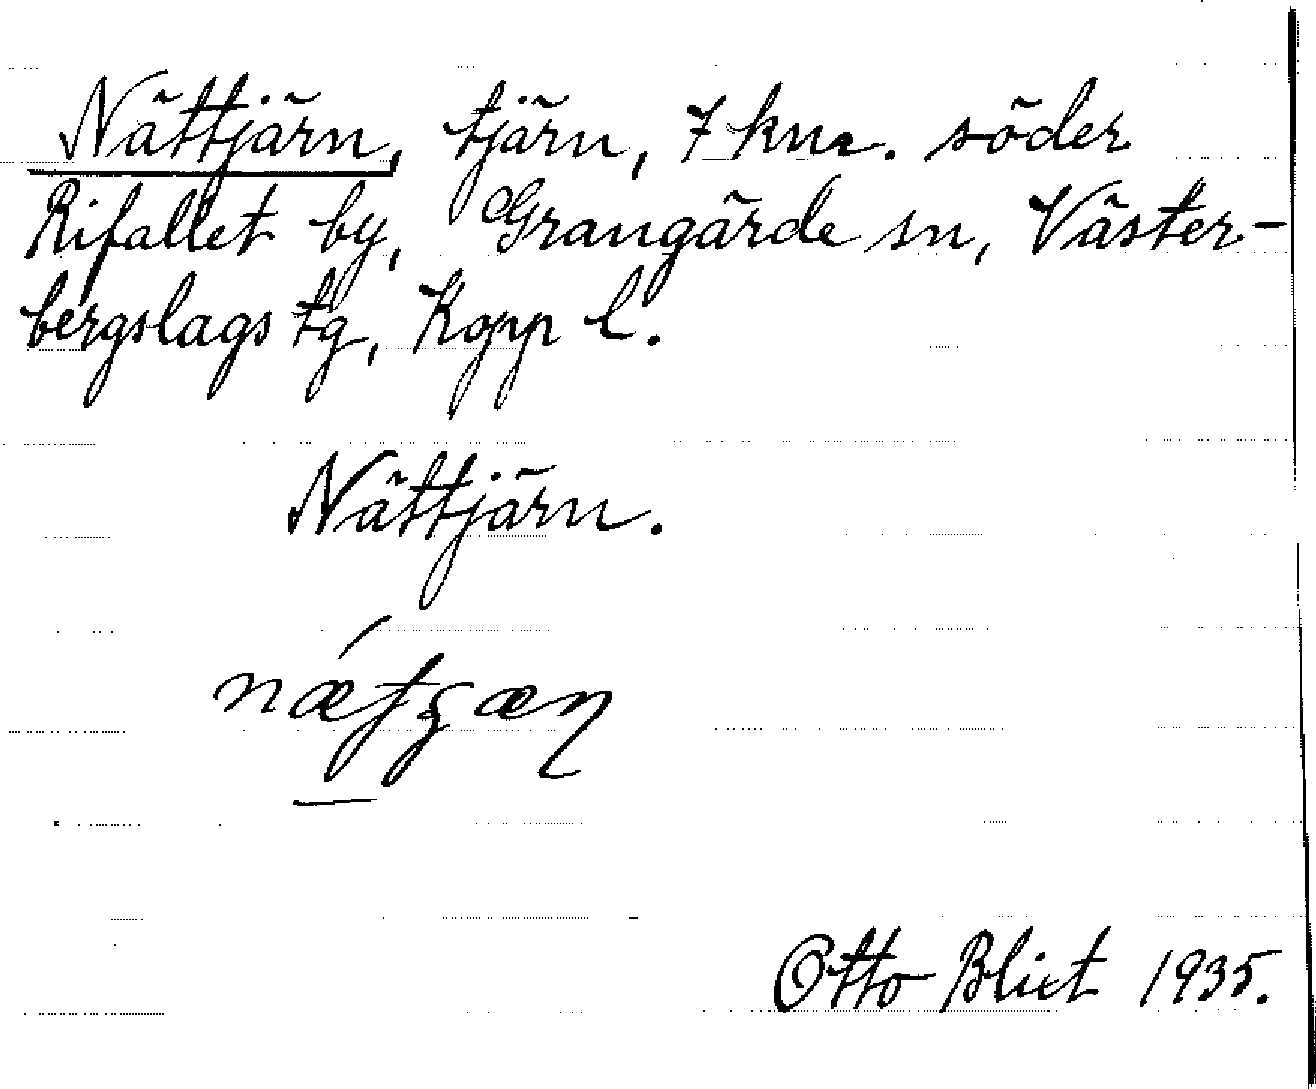 Nättjärn, tjärn, 7 km. söder
Rifallet by, Grangärde sn, Väster-
bergslags tg, Kopp l.
Nättjärn.
Otto Blixt 1935.